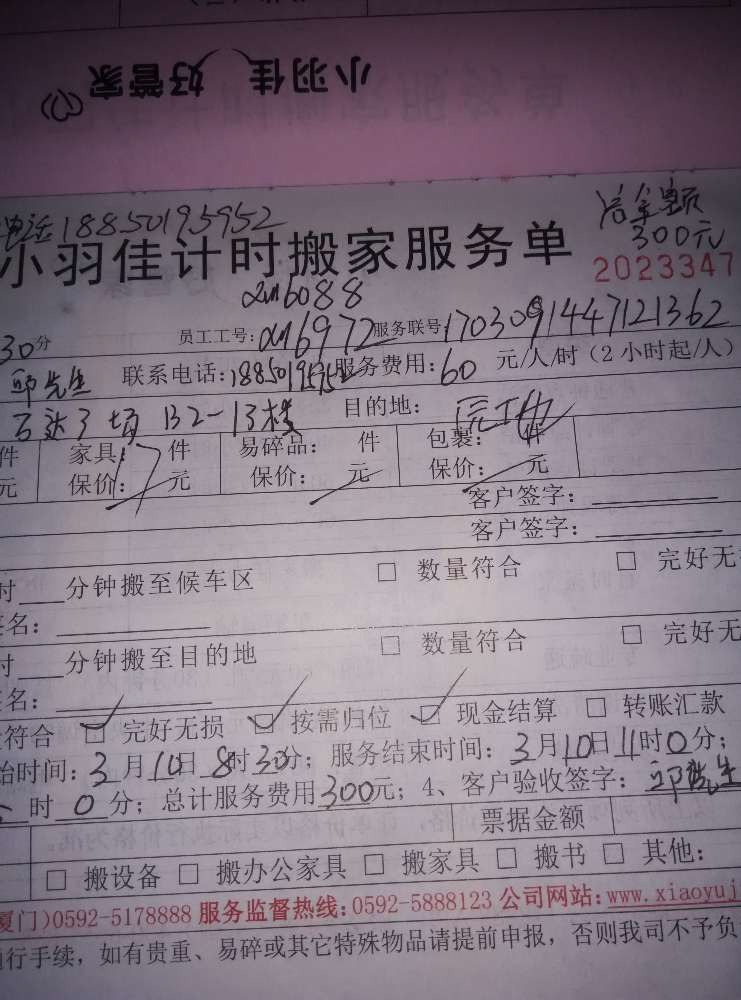 小羽佳 好管家
电话18850195952
总金额
300元
小羽佳计时搬家服务单
2023347
xm6088
30分 员工工号:xm6972 服务联号:1703091447121362
邱先生 联系电话:18850195952 服务费用:60 元/人/时(2小时起/人)
万达广场 B2-13楼 目的地:
件 家具: 件 易碎品: 件 包裹: 件
元 保价: 元 保价: 元 保价: 元
客户签字:
客户签字:
时 分钟搬至候车区 □ 数量符合 □ 完好无
签名:
时 分钟搬至目的地 □ 数量符合 □ 完好无
签名:
符合 ☑ 完好无损 ☑ 按需归位 ☑ 现金结算 □ 转账汇款
始时间:3月10日8时30分; 服务结束时间:3月10日11时0分;
时0分; 总计服务费用300元; 4、客户验收签字:邱先生
票据金额
□ 搬设备 □ 搬办公家具 □ 搬家具 □ 搬书 □ 其他:
厦门)0592-5178888 服务监督热线:0592-5888123 公司网站:www.xiaoyuj
行手续,如有贵重、易碎或其它特殊物品请提前申报,否则我司不予负